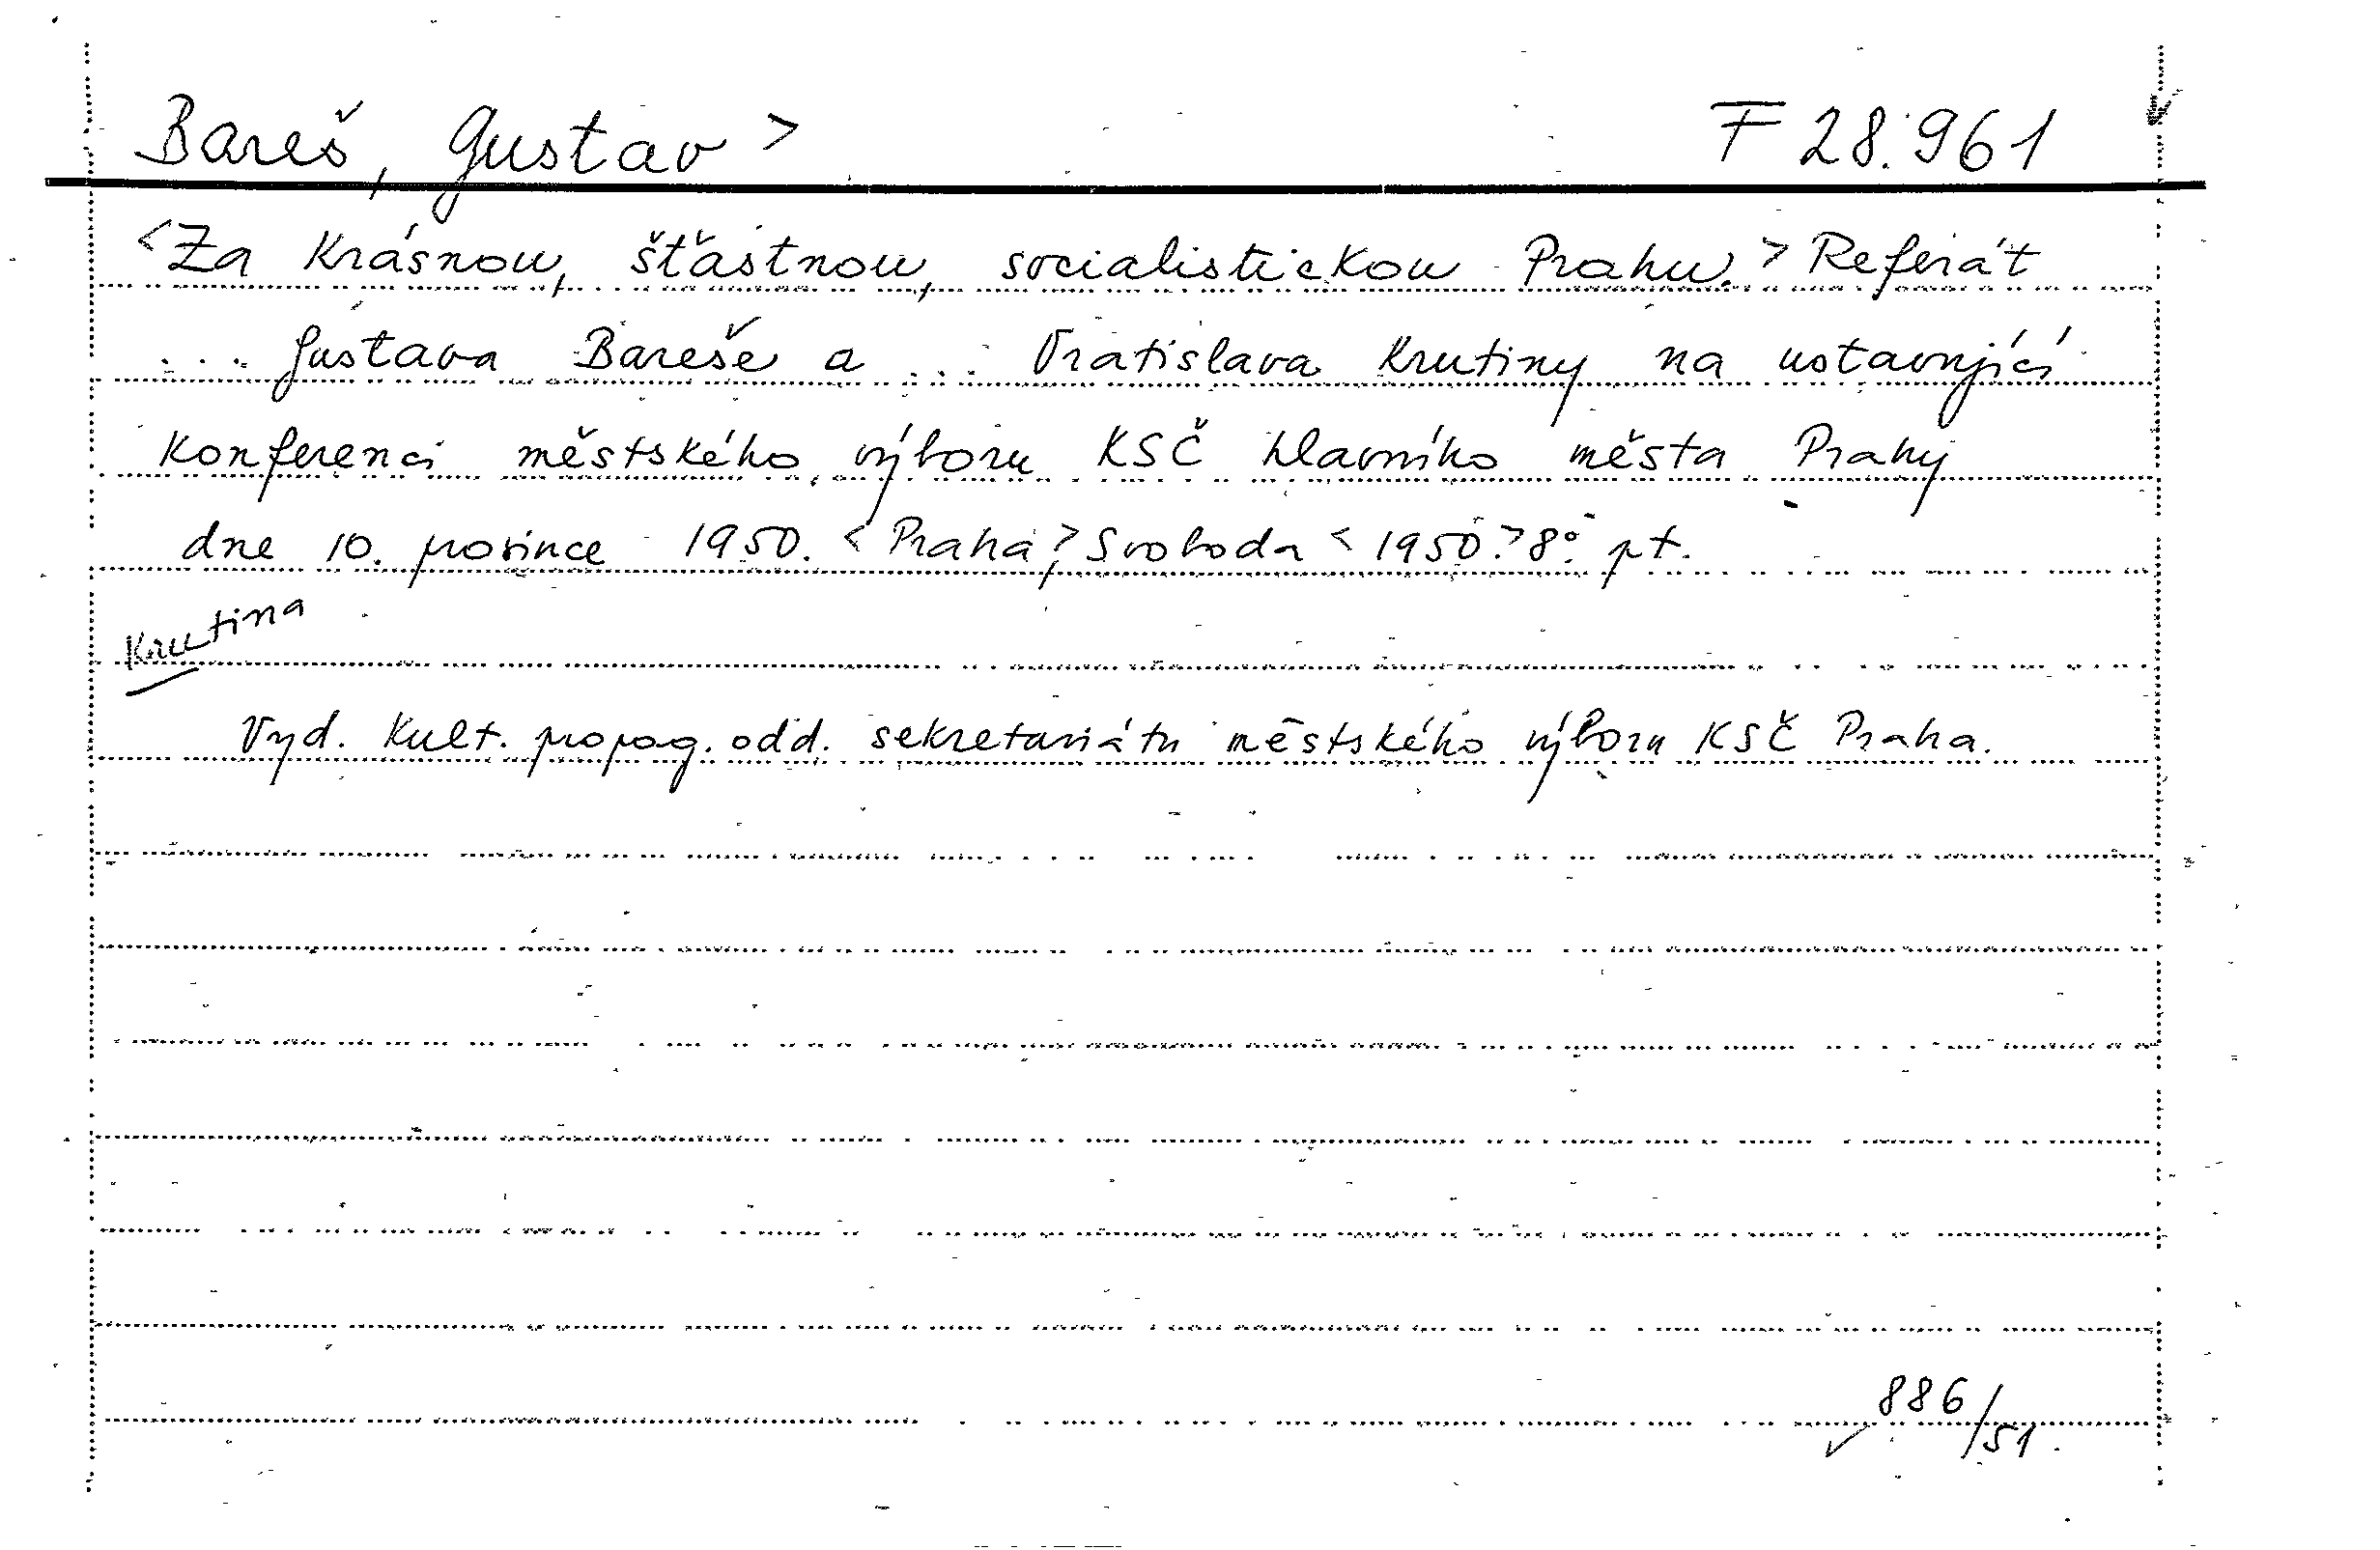 Bareš, Gustav > F 28.961
<Za krásnou, šťastnou, socialistickou Prahu.> Referát
... Gustava Bareše a ... Vratislava Krutiny na ustavující
konferenci městského výboru KSČ hlavního města Prahy
dne 10. prosince 1950. <Praha,> Svoboda <1950.> 8° pt.
Krutina
Vyd. Kult. propag. odd. sekretariátu městského výboru KSČ Praha.
886/51.